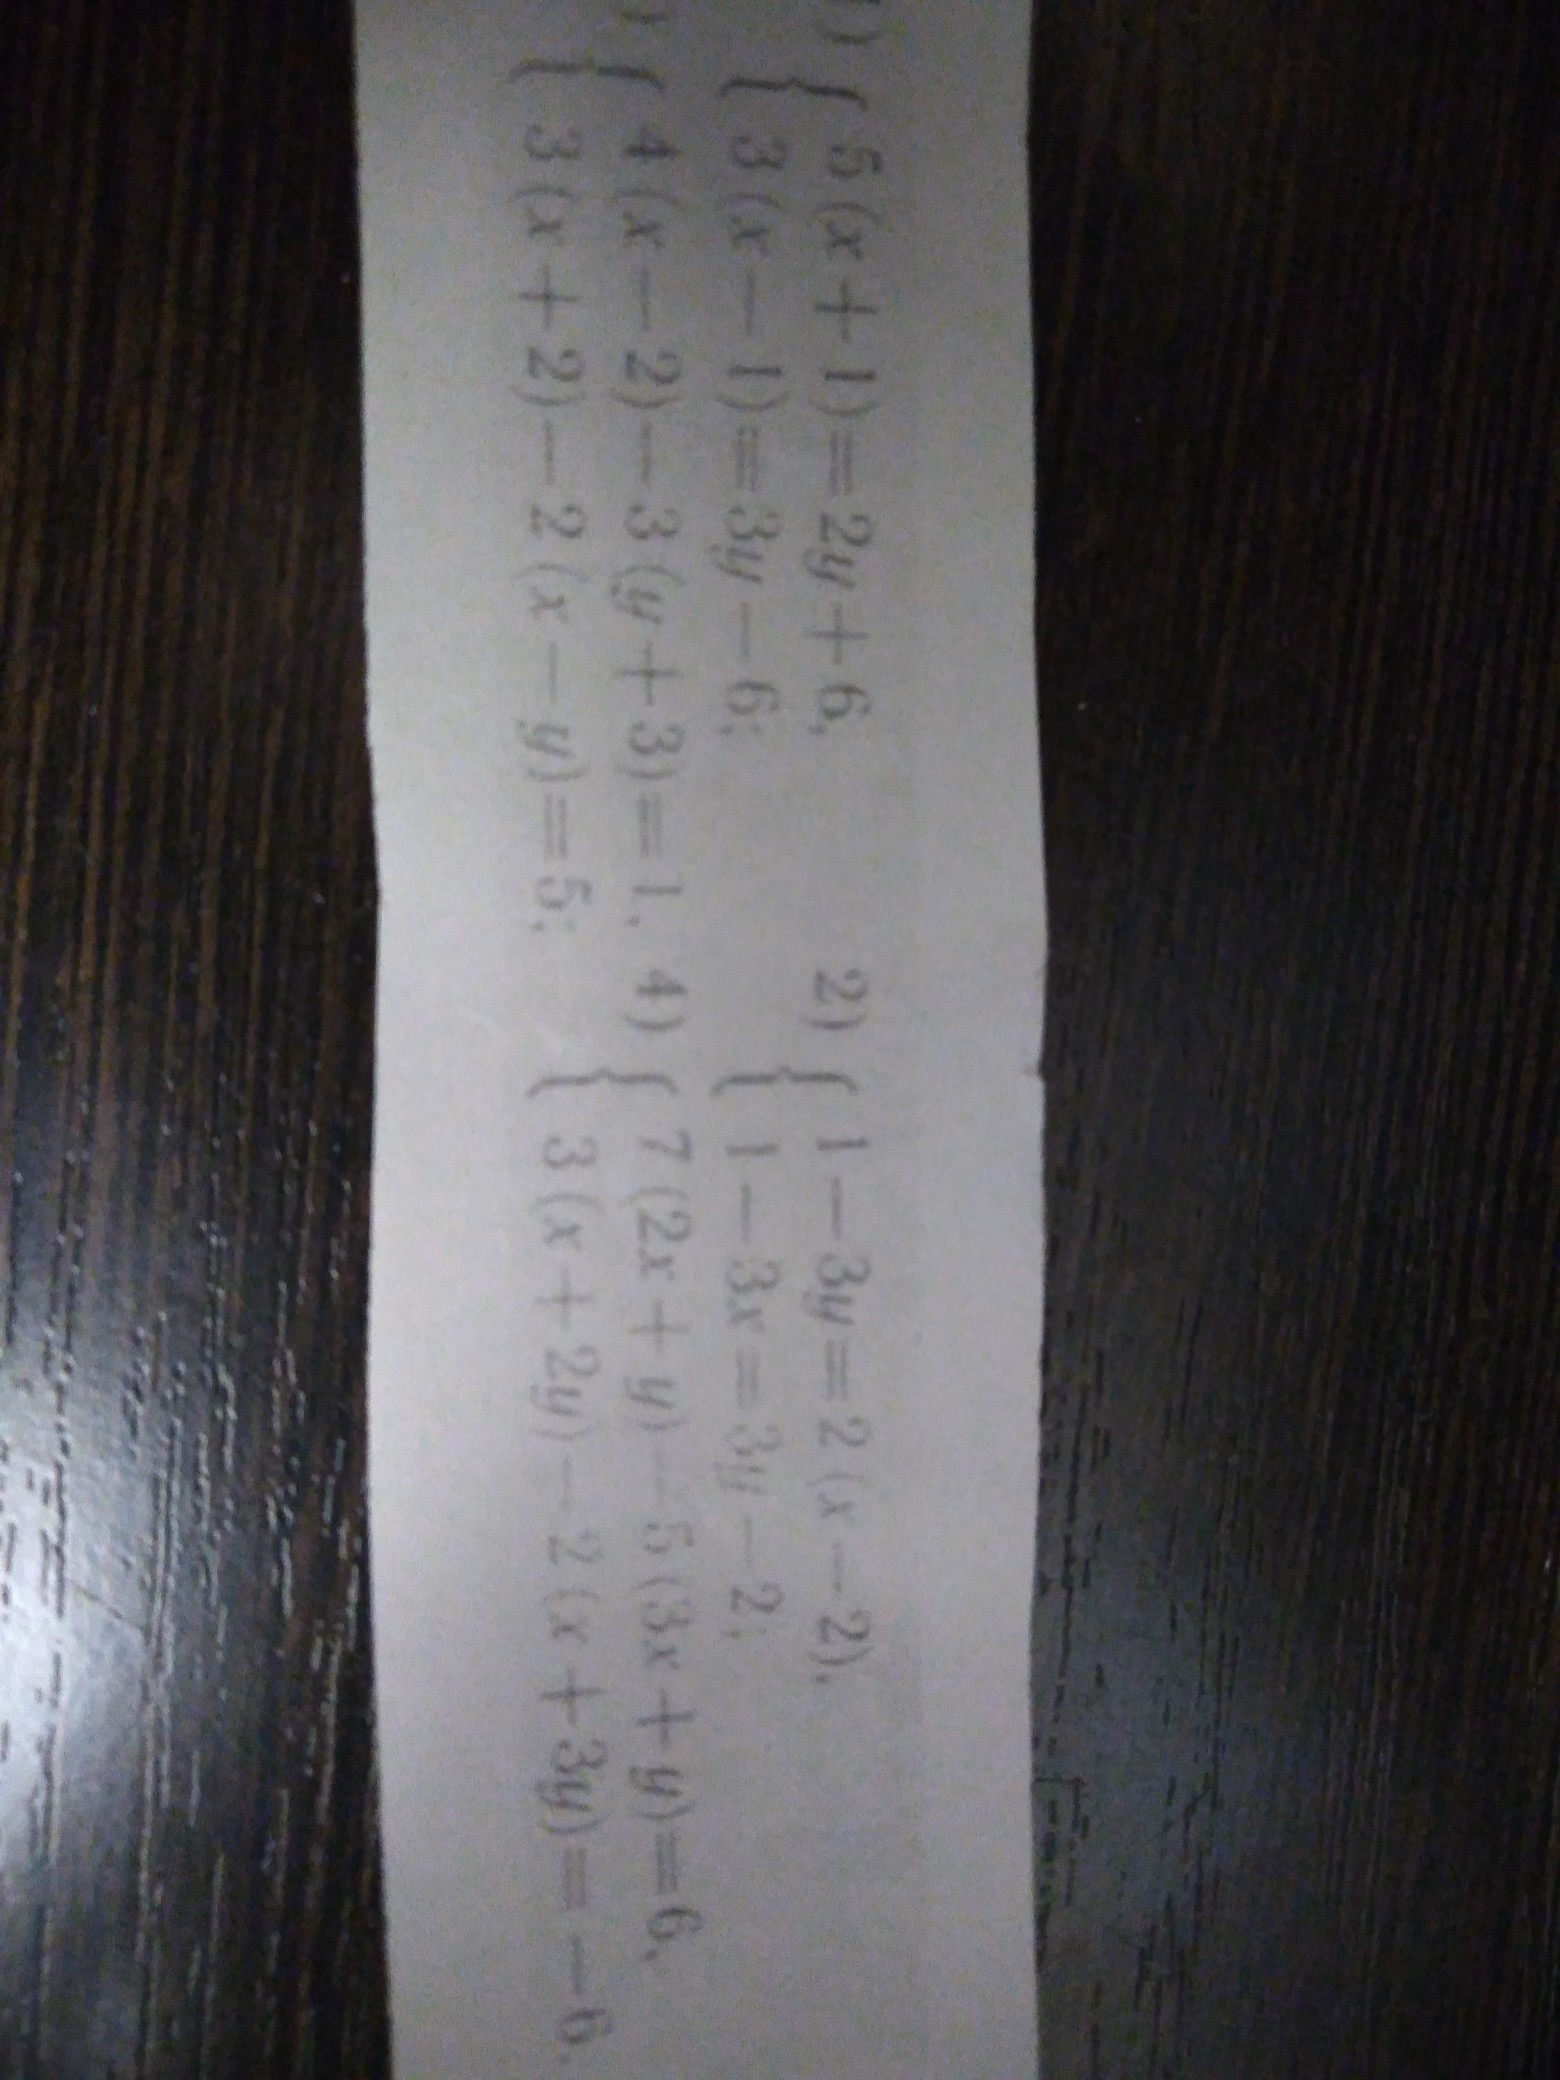 ) { 5 (x + 1) = 2y + 6,
3 (x − 1) = 3y − 6;
2) { 1 − 3y = 2 (x − 2),
1 − 3x = 3y − 2;
) { 4 (x − 2) − 3 (y + 3) = 1,
3 (x + 2) − 2 (x − y) = 5;
4) { 7 (2x + y) − 5 (3x + y) = 6,
3 (x + 2y) − 2 (x + 3y) = − 6.